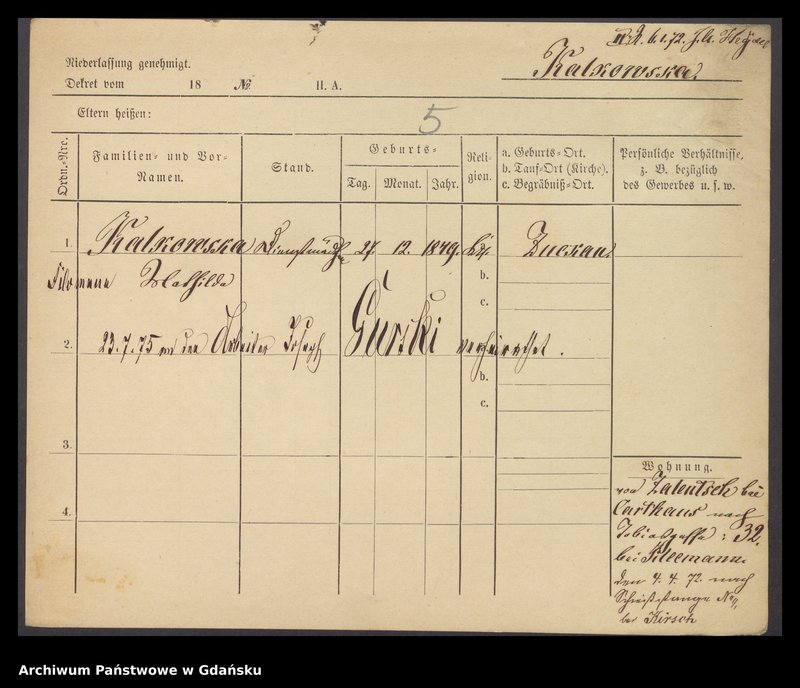 6.1.72.
Kalkowska.
Niederlassung genehmigt.
Dekret vom 18 No II. A.
Eltern heißen:
5
Ordn.-Nre.
Familien- und Vor-
Namen.
Stand.
Geburts-
Tag. Monat. Jahr.
Reli-
gion.
a. Geburts-Ort.
b. Tauf-Ort (Kirche).
c. Begräbniß-Ort.
Persönliche Verhältnisse,
z. B. bezüglich
des Gewerbes u. s. w.
1. Kalkowska Dienstmädch 27. 12. 1849. kth. Zuckau.
Filomena Mathilda
b.
c.
2. 23.7.75 an den Arbeiter Joseph Gurski verheirathet.
b.
c.
3.
4.
Wohnung.
von Zalentsch bei
Carthaus nach
Tobiasgasse: 32.
bei Kleemann.
den 4.4.72. nach
Schießstange No 11,
bei Kirsch
Archiwum Państwowe w Gdańsku